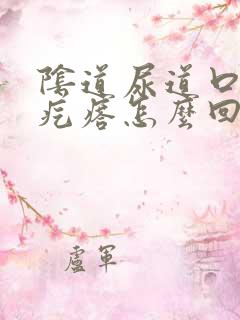 陰道尿道口
疙瘩怎麼回
盧軍